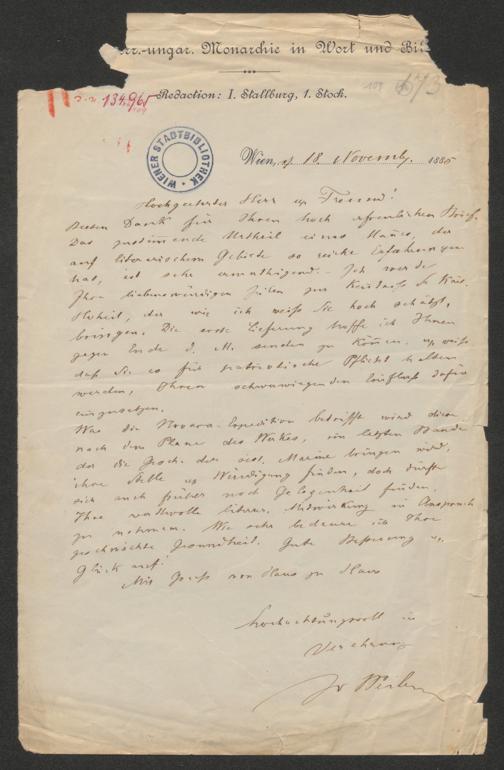 err.-ungar. Monarchie in Wort und Bil
Redaction: I. Stallburg, 1. Stock.
134.965
WIENER STADTBIBLIOTHEK
Wien, 18. November 1885
Hochgeehrter Herr und Freund!
Besten Dank für Ihren hoch erfreulichen Brief.
Das Urtheil eines Mannes, der
auf literarischem Gebiete so reiche Erfahrungen
hat, ist sehr ermuthigend. Ich werde
Ihre liebenswürdigen Zeilen zur Kenntniß Sr. Kais.
Hoheit, der wie ich weiß Sie hoch schätzt,
bringen. Die erste Lieferung hoffe ich Ihnen
gegen Ende d. M. senden zu können. weiß
daß Sie es für patriotische Pflicht halten
werden, Ihren schwerwiegenden Einfluß dafür
einzusetzen.
Was die Novara-Expedition betrifft wird diese
nach dem Plane des Werkes, im letzten Bande
der die Gesch. der oest. Marine bringen wird,
ihre Stelle u. Würdigung finden, doch dürfte
sich auch früher noch Gelegenheit finden,
Ihre werthvolle literar. Mitwirkung in Anspruch
zu nehmen. Wie sehr bedaure ich Ihre
geschwächte Gesundheit. Gute Besserung u.
Glück auf!
Mit Gruß von Haus zu Haus
Hochachtungsvoll in
Verehrung